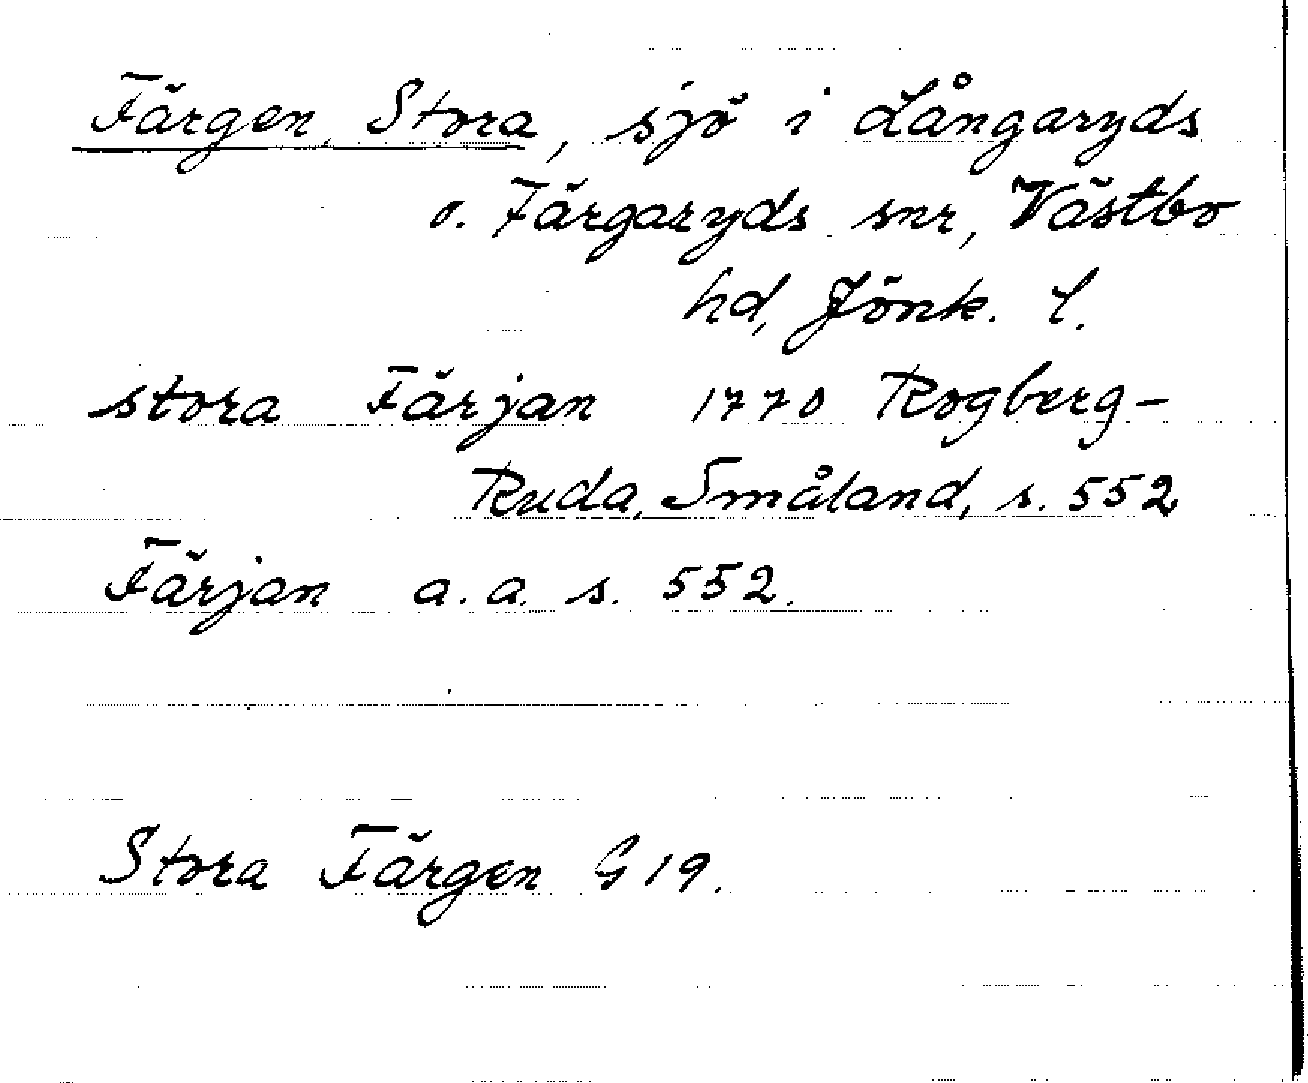 Färgen, Stora, sjö i Långaryds
o. Färgaryds snr, Västbo
hd, Jönk. l.
stora Färjan 1770 Rogberg-
Ruda, Småland, s. 552
Färjan a. a. s. 552.
Stora Färgen G 19.